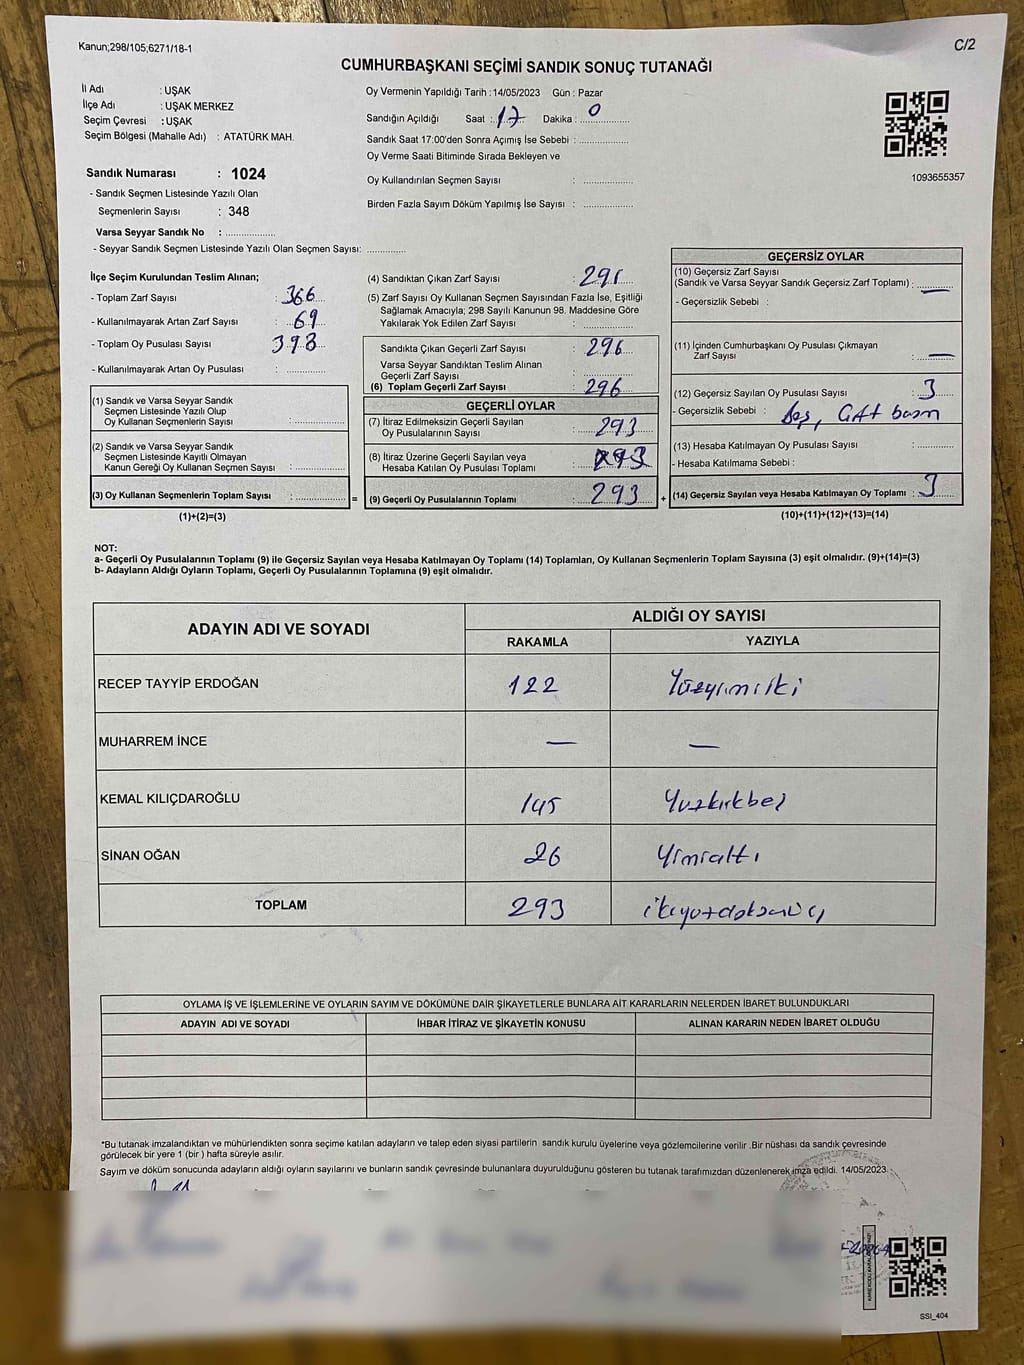 Kanun;298/105;6271/18-1
C/2
CUMHURBAŞKANI SEÇİMİ SANDIK SONUÇ TUTANAĞI
İl Adı : UŞAK
İlçe Adı : UŞAK MERKEZ
Seçim Çevresi : UŞAK
Seçim Bölgesi (Mahalle Adı) : ATATÜRK MAH.
Sandık Numarası : 1024
- Sandık Seçmen Listesinde Yazılı Olan
Seçmenlerin Sayısı : 348
Varsa Seyyar Sandık No : ..............
- Seyyar Sandık Seçmen Listesinde Yazılı Olan Seçmen Sayısı: ............
Oy Vermenin Yapıldığı Tarih :14/05/2023 Gün : Pazar
Sandığın Açıldığı Saat : 17 Dakika : 0
Sandık Saat 17:00'den Sonra Açımış İse Sebebi : ..............
Oy Verme Saati Bitiminde Sırada Bekleyen ve
Oy Kullandırılan Seçmen Sayısı : ..............
Birden Fazla Sayım Döküm Yapılmış İse Sayısı : ..............
1093655357
İlçe Seçim Kurulundan Teslim Alınan;
- Toplam Zarf Sayısı : 366
- Kullanılmayarak Artan Zarf Sayısı : 69
- Toplam Oy Pusulası Sayısı : 398
- Kullanılmayarak Artan Oy Pusulası : ............
(1) Sandık ve Varsa Seyyar Sandık
Seçmen Listesinde Yazılı Olup
Oy Kullanan Seçmenlerin Sayısı : ..............
(2) Sandık ve Varsa Seyyar Sandık
Seçmen Listesinde Kayıtlı Olmayan
Kanun Gereği Oy Kullanan Seçmen Sayısı : ..............
(3) Oy Kullanan Seçmenlerin Toplam Sayısı : .............. =
(1)+(2)=(3)
(4) Sandıktan Çıkan Zarf Sayısı : 296
(5) Zarf Sayısı Oy Kullanan Seçmen Sayısından Fazla İse, Eşitliği
Sağlamak Amacıyla; 298 Sayılı Kanunun 98. Maddesine Göre
Yakılarak Yok Edilen Zarf Sayısı : ..............
Sandıkta Çıkan Geçerli Zarf Sayısı : 296
Varsa Seyyar Sandıktan Teslim Alınan
Geçerli Zarf Sayısı : ..............
(6) Toplam Geçerli Zarf Sayısı : 296
GEÇERLİ OYLAR
(7) İtiraz Edilmeksizin Geçerli Sayılan
Oy Pusulalarının Sayısı : 293
(8) İtiraz Üzerine Geçerli Sayılan veya
Hesaba Katılan Oy Pusulası Toplamı : 293
(9) Geçerli Oy Pusulalarının Toplamı : 293 +
GEÇERSİZ OYLAR
(10) Geçersiz Zarf Sayısı
(Sandık ve Varsa Seyyar Sandık Geçersiz Zarf Toplamı) : —
- Geçersizlik Sebebi :
(11) İçinden Cumhurbaşkanı Oy Pusulası Çıkmayan
Zarf Sayısı : —
(12) Geçersiz Sayılan Oy Pusulası Sayısı : 3
- Geçersizlik Sebebi : boş, Çift basım
(13) Hesaba Katılmayan Oy Pusulası Sayısı : ............
- Hesaba Katılmama Sebebi :
(14) Geçersiz Sayılan veya Hesaba Katılmayan Oy Toplamı : 3
(10)+(11)+(12)+(13)=(14)
NOT:
a- Geçerli Oy Pusulalarının Toplamı (9) ile Geçersiz Sayılan veya Hesaba Katılmayan Oy Toplamı (14) Toplamları, Oy Kullanan Seçmenlerin Toplam Sayısına (3) eşit olmalıdır. (9)+(14)=(3)
b- Adayların Aldığı Oyların Toplamı, Geçerli Oy Pusulalarının Toplamına (9) eşit olmalıdır.
ADAYIN ADI VE SOYADI ALDIĞI OY SAYISI
RAKAMLA YAZIYLA
RECEP TAYYİP ERDOĞAN 122 Yüzyirmiiki
MUHARREM İNCE — —
KEMAL KILIÇDAROĞLU 145 Yuzkırkbeş
SİNAN OĞAN 26 Yirmialtı
TOPLAM 293 ikiyüzdoksanüç
OYLAMA İŞ VE İŞLEMLERİNE VE OYLARIN SAYIM VE DÖKÜMÜNE DAİR ŞİKAYETLERLE BUNLARA AİT KARARLARIN NELERDEN İBARET BULUNDUKLARI
ADAYIN ADI VE SOYADI İHBAR İTİRAZ VE ŞİKAYETİN KONUSU ALINAN KARARIN NEDEN İBARET OLDUĞU
*Bu tutanak imzalandıktan ve mühürlendikten sonra seçime katılan adayların ve talep eden siyasi partilerin sandık kurulu üyelerine veya gözlemcilerine verilir .Bir nüshası da sandık çevresinde
görülecek bir yere 1 (bir ) hafta süreyle asılır.
Sayım ve döküm sonucunda adayların aldığı oyların sayılarını ve bunların sandık çevresinde bulunanlara duyurulduğunu gösteren bu tutanak tarafımızdan düzenlenerek imza edildi. 14/05/2023
SSI_404